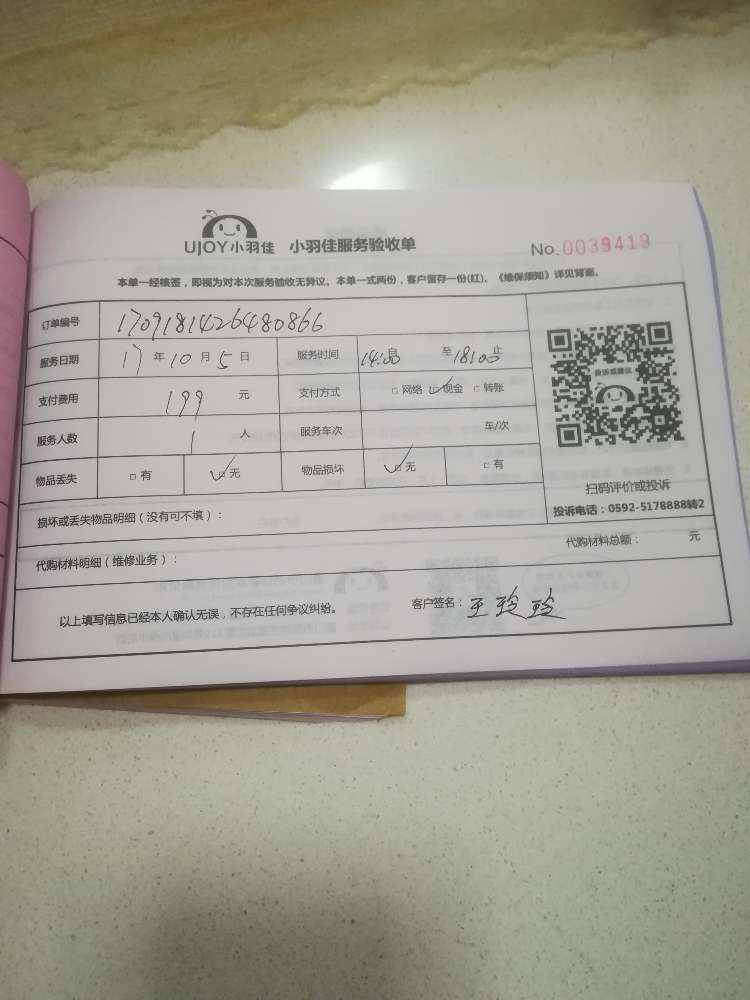 UJOY小羽佳 小羽佳服务验收单 No.0039419
本单一经核签，即视为对本次服务验收无异议。本单一式两份，客户留存一份(红)。《维保须知》详见背面。
订单编号 1709181426480866
服务日期 17 年 10 月 5 日 服务时间 14:00 自 至 18:00 止
支付费用 199 元 支付方式 □网络 ☑现金 □转账
服务人数 1 人 服务车次 车/次
物品丢失 □有 ☑无 物品损坏 ☑无 □有
投诉或建议
扫码评价或投诉
投诉电话：0592-5178888转2
损坏或丢失物品明细（没有可不填）：
代购材料明细（维修业务）： 代购材料总额： 元
以上填写信息已经本人确认无误，不存在任何争议纠纷。 客户签名：王玲玲